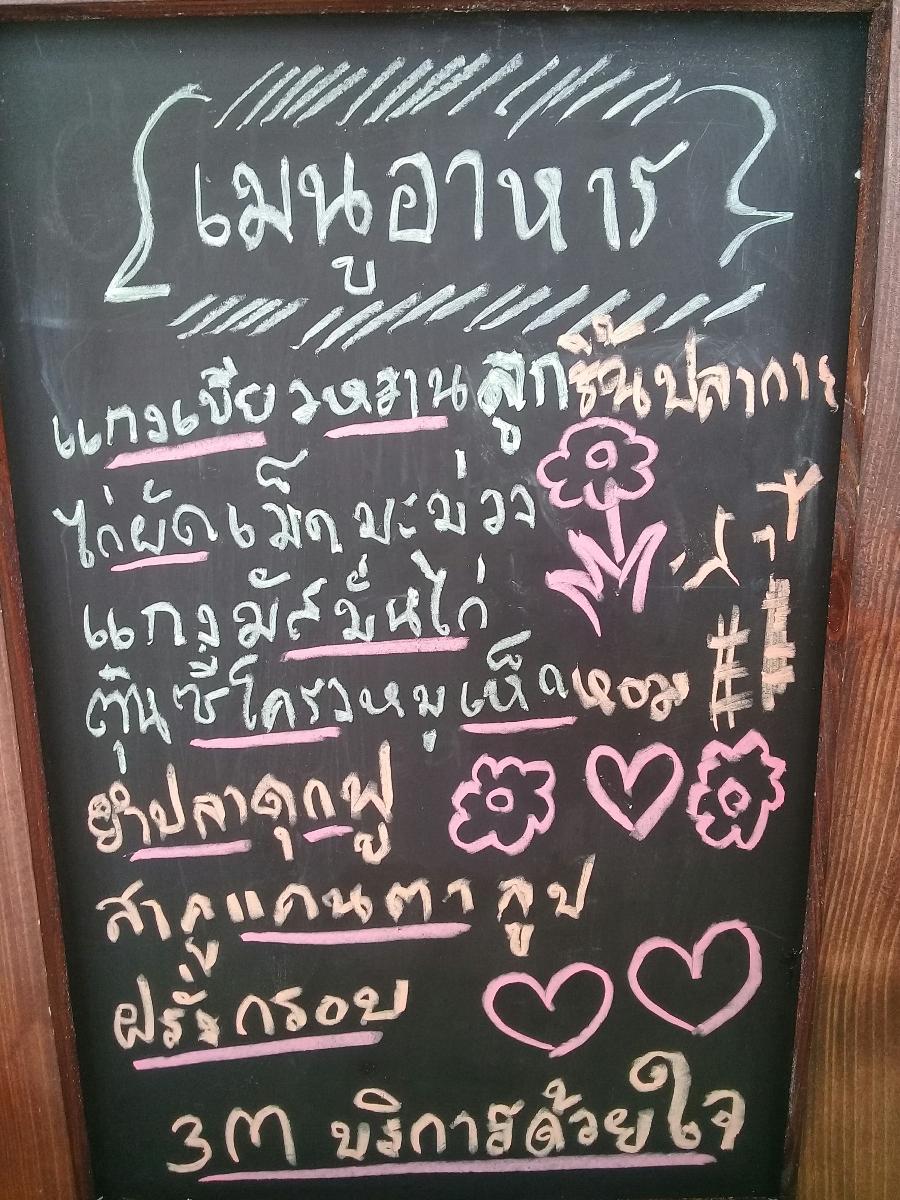 เมนูอาหาร
แกงเขียวหวานลูกชิ้นปลากราย
ไก่ผัดเม็ดมะม่วง
แกงมัสมั่นไก่
ตุ๋นซี่โครงหมูเห็ดหอม
ยำปลาดุกฟู
สาคูแคนตาลูป
ฝรั่งกรอบ
3M บริการด้วยใจ